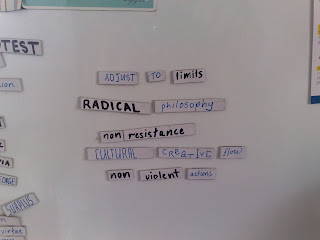 OTEST
ADJUST TO limits
RADICAL philosophy
non resistance
CULTURAL CREATIVE flow
non violent actions
SURPLUS
virtue